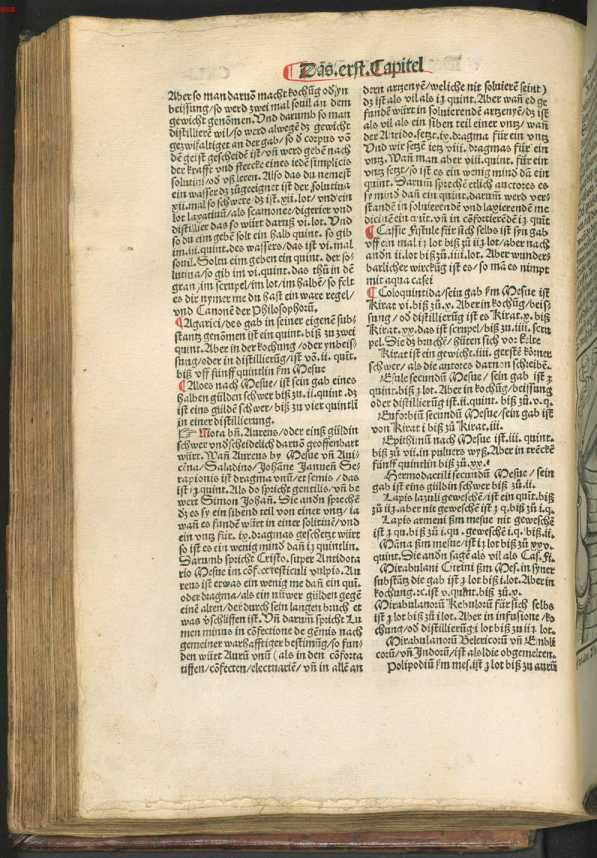 Das.erst.Capitel
Aber so man daruō macht kochūg oď yn
beissung/so werd zwei mal souil an dem
gewicht genōmen. Vnd darumb so man
distilliere wil/so werd alwegē dz gewicht
gezwifaltiget an der gab/so ď corpus vō
dē geist gescheidē ist/vn̄ werd gebē nach
der krafft vnd stercke eines iedē simplicis
solutiui/oď vß leren. Also das du nemest
ein wasser dz zůgeeignet ist der solutiua
xii.mal so schwere dz ist.xii.lot/vnd ein
lot laxatiuū/als scamonee/digerier vnd
distillier das so würt daruß vi.lot. Vnd
so du eim gebē solt ein halb quint. so gib
im.iii.quint.des wassers/das ist vi.mal
souil. Soltu eim geben ein quint. der so-
lutiua/so gib im vi.quint.das thů in dē
gran/im scrupel/im lot/im halbē/so felt
es dir nymer me du hast ein ware regel/
vnd Canonē der Philosophorū.
¶Agarici/des gab in seiner eigenē sub-
stantz genōmen ist ein quint. biß zu zwei
quint. Aber in der kochung/oder ynbeis-
sung/oder in distillierūg/ist vō.ii. quit.
biß vff fünff quintlin ẜm Mesue
¶Aloes nach Mesue/ist sein gab eines
halben gülden schwer biß zu.ii.quint .dz
ist eins güldē schwer/biß zu vier quintli
in einer distillierung.
☞ Nota bn̄. Aureus/oder einß güldin
schwer vnďscheidelich daruō geoffenbart
würt. Wan̄ Aureus by Mesue vn̄ Aui-
cēna/Saladino/Johāne Jannen̄ Se-
rapionis ist dragma vnū/et semis /das
ist iʒ quint. Als do spricht gentilis/vn̄ be
wert Simon Johan̄. Die andn̄ sprechē
dz es sy ein sibend teil von einer vntz/ia
wan̄ es fundē würt in einer solutiuē/vnd
ein vntz für. ix.dragmas geschetzt würt
so ist es ein wenig mind dan̄ iʒ quintlin.
Darumb spricht Cristo. super Antidota
rio Mesue im cōf. ex testiculi vulpis. Au
reus ist etwas ein wenig me dan̄ ein quī.
oder dragma/als ein nüwer gülden gegē
einē alten/der durch sein langen bruch et
was vschliffen ist. Vn̄ darum̄ spricht Lu
men minus in cōfectione de gēmis nach
gemeiner warhafftiger bestimūg/so fun-
den würt Aurū vnū (als in den cōforta
tiffen/cōfecten/electuariē/ vn̄ in allē an
dern artzenyē/weliche nit soluierē seint)
dz ist als vil als iʒ quint. Aber wan̄ ed ge
fundē würt in soluierende artzenyē/dz ist
als vil als ein siben teil einer vntz/wan̄
der Antido.setzt.ix.dragma für ein vntz
Vnd wir setzē ietz viii. dragmas für ein
vntz. Wan̄ man aber viii.quint. für ein
vntz setzt/so ist es ein wenig mind dā ein
quint. Darum̄ sprechē etlich auctores es
sy mind dan̄ ein quint.darum̄ werd ver-
standē in soluierendē vnd laxierendē me
dicinē ein quīt.vn̄ in cōfortierēdē iʒ quīt
¶Cassie Fistule für sich selbs ist syn gab
vff ein mal iʒ lot biß zů iiʒ lot/aber nach
andn̄ ii.lot biß zů.iii.lot. Aber wunder-
barlicher wirckūg ist es/so mā es nimpt
mit aqua casei
¶Coloquintida/sein gab ẜm Mesue ist
Kirat vi.biß zů.x. Aber in kochūg/beis-
sung / oď distillierūg ist es Kirat.x. biß
Kirat.xx.das ist scrupel/biß zu.iiii.scru
pel. Sie dz bruchē/hüten sich vor kelte
Kirat ist ein gewicht.iiii. gerstē körner
schwer/als die autores daruon schribē.
Esule secundū Mesue/ sein gab ist ʒ
quint.biß ʒ lot. Aber in kochūg/beissung
oder distillierūg ist.ii.quint. biß zů.v.q.
Eusorbiū secundū Mesue/sein gab ist
von Kirat i biß zů Kirat.iii.
Epithimū nach Mesue ist.iii. quint.
biß zů vii.in puluers wyß. Aber in trēckē
fünff quintlin biß zů.xx.
Hermodactili secundū Mesue / sein
gab ist eins güldin schwer biß zů.ii.
Lapis lazuli geweschē/ist ein quīt.biß
zů iiʒ.aber nit geweschē ist ʒ q.biß zů i.q.
Lapis armeni ẜm mesue nit geweschē
ist ʒ qn.biß zů i.qn. geweschē i.q.biß.ii.
Māna ẜm mesue/ist iʒ lot biß zů xxv.
quint. Die andn̄ sagē als vil als Cas.fi.
Mirabulani Citrini ẜm Mes. in syner
substātz die gab ist ʒ lot biß i.lot. Aber in
kochung.ꝛc.ist v.quint.biß zů.x.
Mirabulanorū Kebulorū für sich selbs
ist ʒ lot biß zů i lot. Aber in infusione /ko
chung/oď distillierūg i lot biß zu ii ʒ lot.
Mirabulanorū Belericorū vn̄ Embli
corū/vn̄ Indorū/ist als die obgemelten.
Polipodiū ẜm mes.ist ʒ lot biß zu aurū